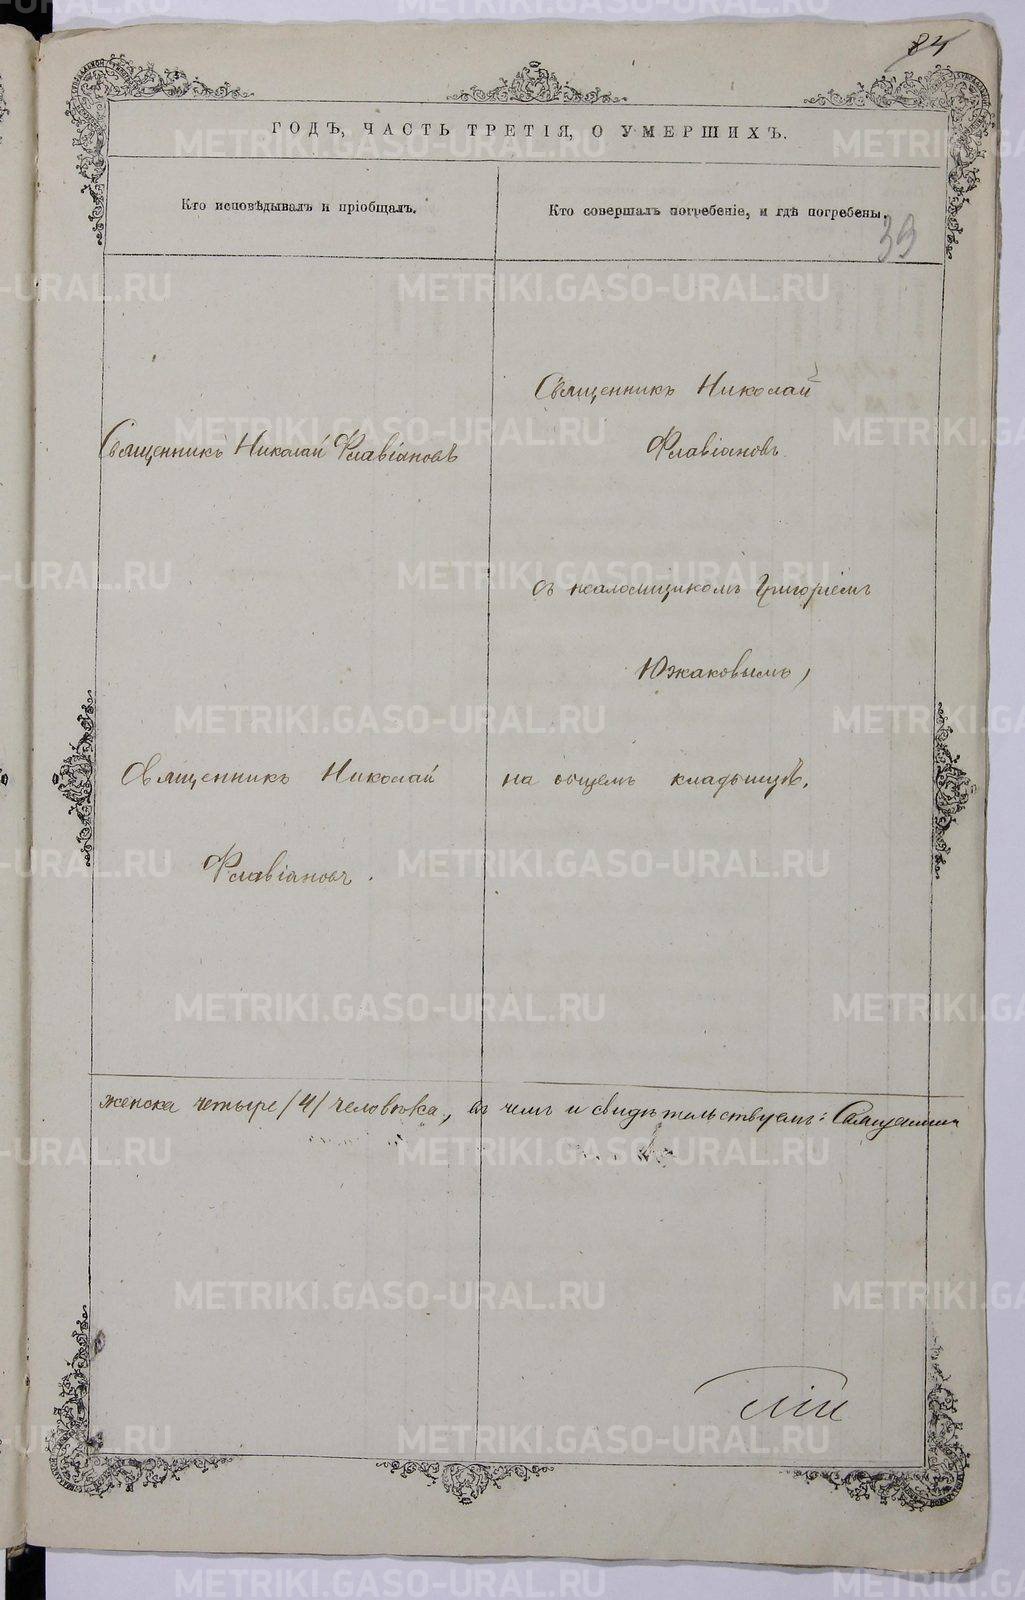 84
ГОДЪ, ЧАСТЬ ТРЕТІЯ, О УМЕРШИХЪ.
Кто исповѣдывалъ и пріобщалъ.
Кто совершалъ погребеніе, и гдѣ погребены.
39
Священникъ Николай Флавіановъ
Священникъ Николай
Флавіановъ
съ псаломщикомъ Григоріемъ
Южаковымъ,
Священникъ Николай
Флавіановъ.
на общемъ кладбищѣ.
женска четыре /4/ человѣка, въ чемъ и свидѣтельствуемъ: Священни
METRIKI.GASO-URAL.RU